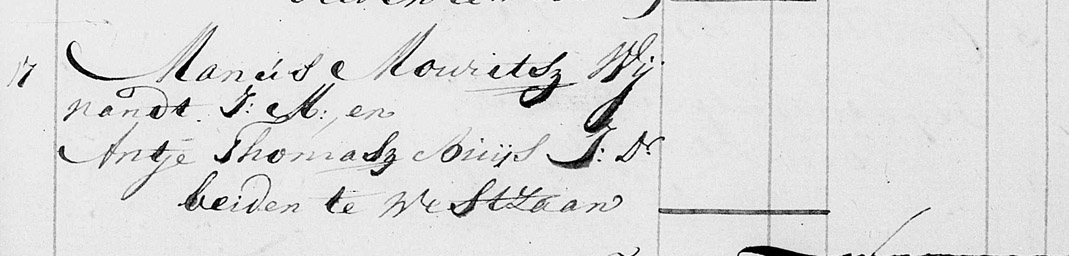 17 Manús Mouritsz Wij
nandt. J: M:, en
Antje Thomasz Buijs J: Dr
beiden te WestZaan